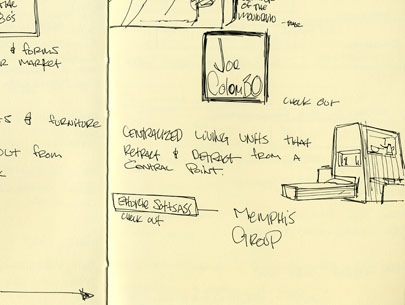 & FORMS
MARKET
& FURNITURE
OUT FROM
OF THE
JOE
COLOMBO
CHECK OUT
CENTRALIZED LIVING UNITS THAT
RETRACT & DETRACT FROM A
CENTRAL POINT.
ETTORE SOTTSASS
CHECK OUT
MEMPHIS
GROUP